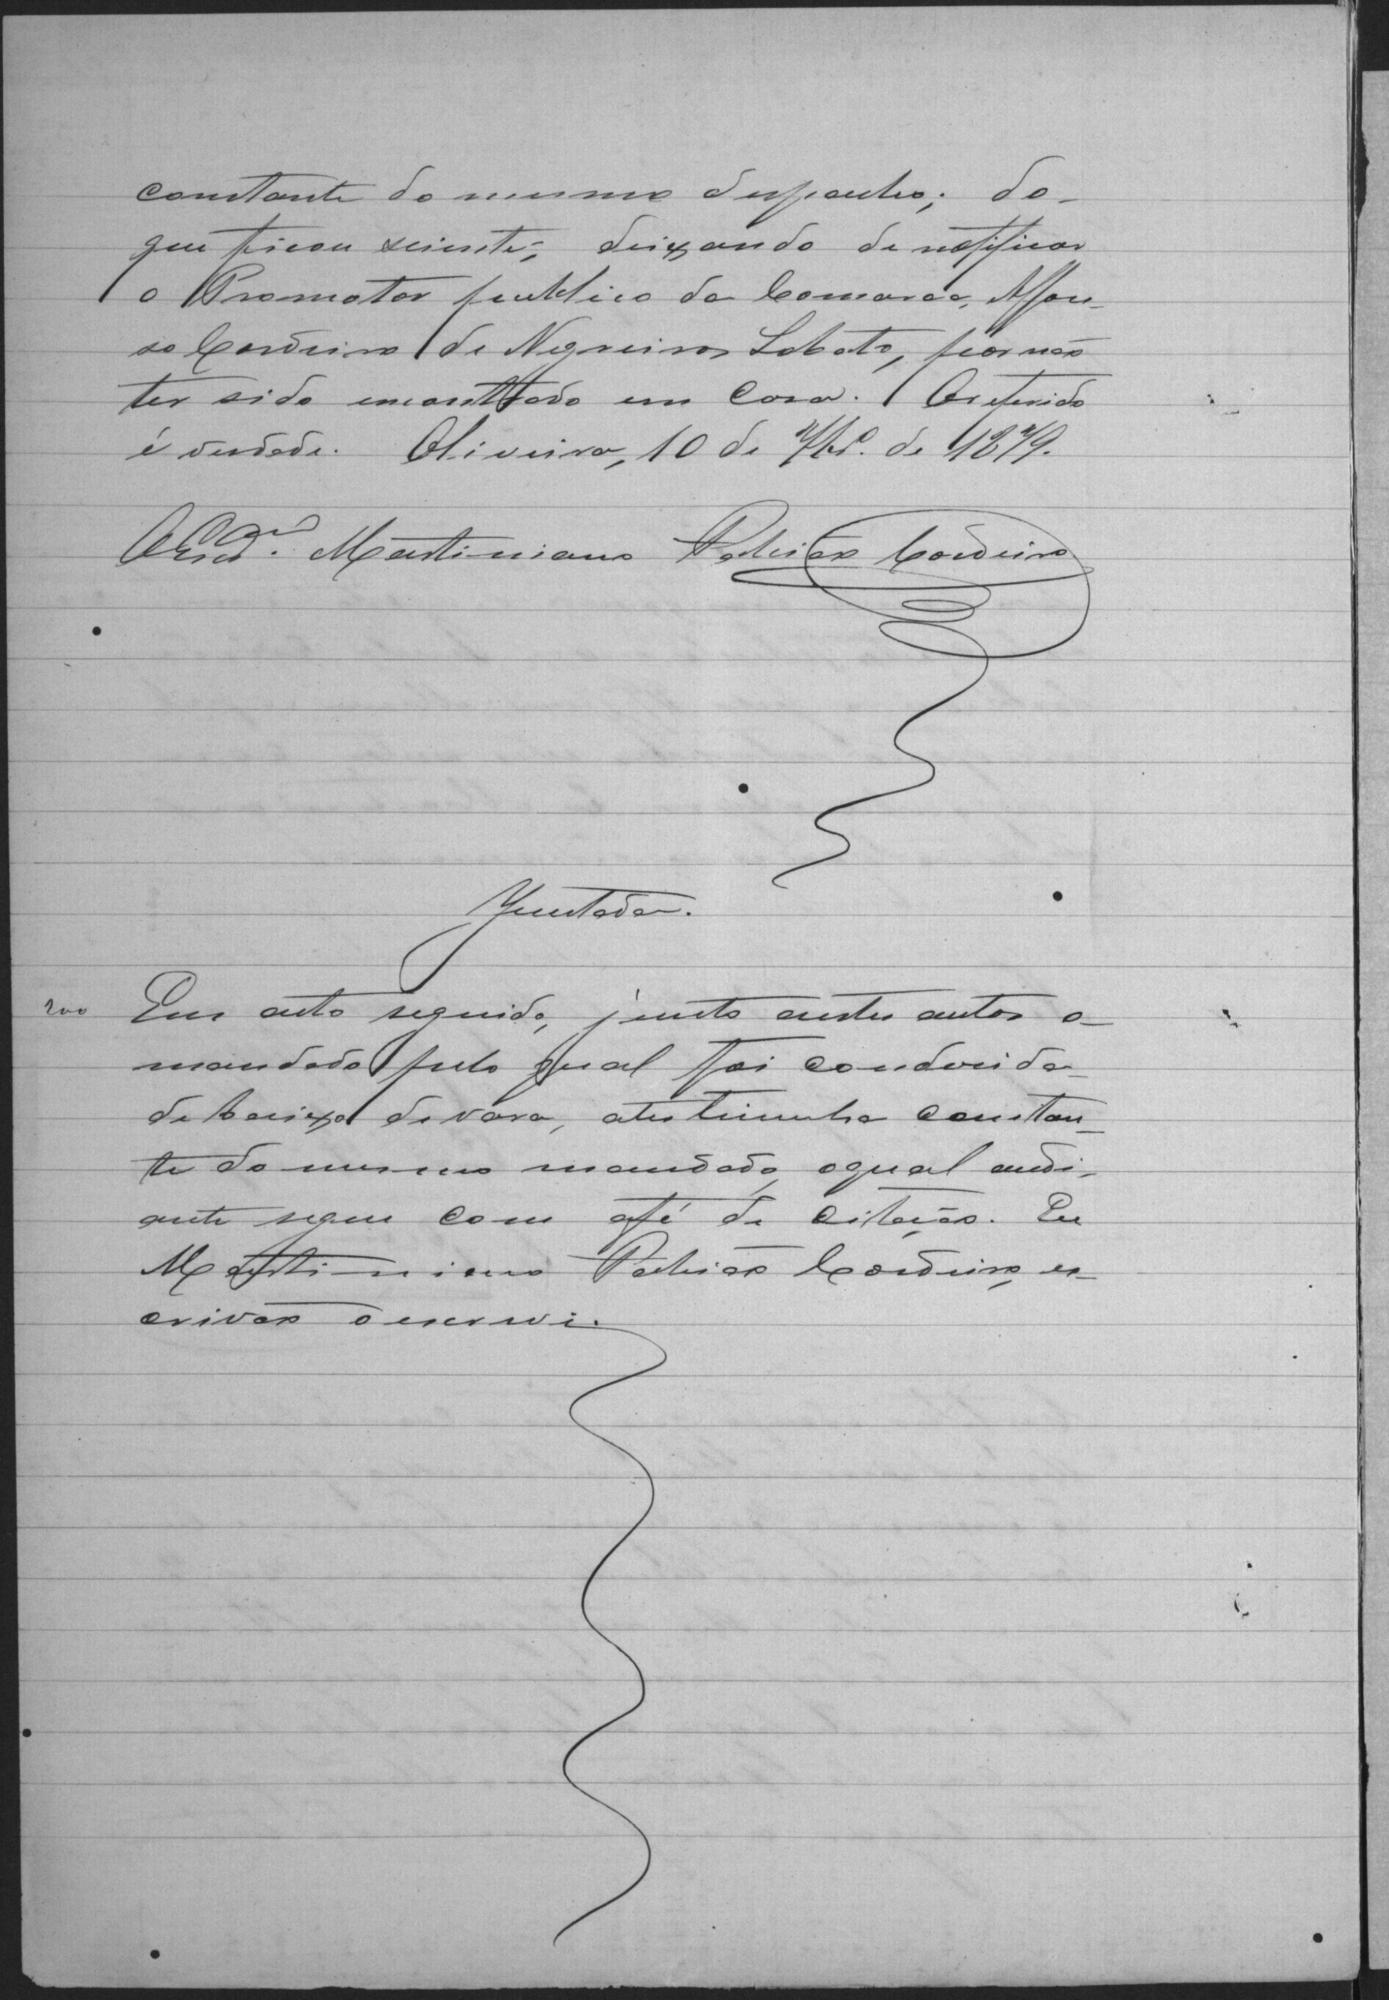 constante do mesmo despacho; do
que ficou sciente; deixando de notificar
o Promotor publico da Comarca, Affon-
so Cordeiro de Negreiros Lobato, por não
ter sido encontrado em casa. O referido
é verdade. Oliveira, 10 de 7bro. de 1879.
O Escam. Martiniano Cordeiro
Juntada.
200 Em acto seguido, junto a estes autos o
mandado pelo qual foi conduzida
debaixo de vara, a testimunha constan-
te do mesmo mandado, o qual audi-
ante segue com a fé de citação. Eu
Martiniano Cordeiro, es-
crivão o escrevi.